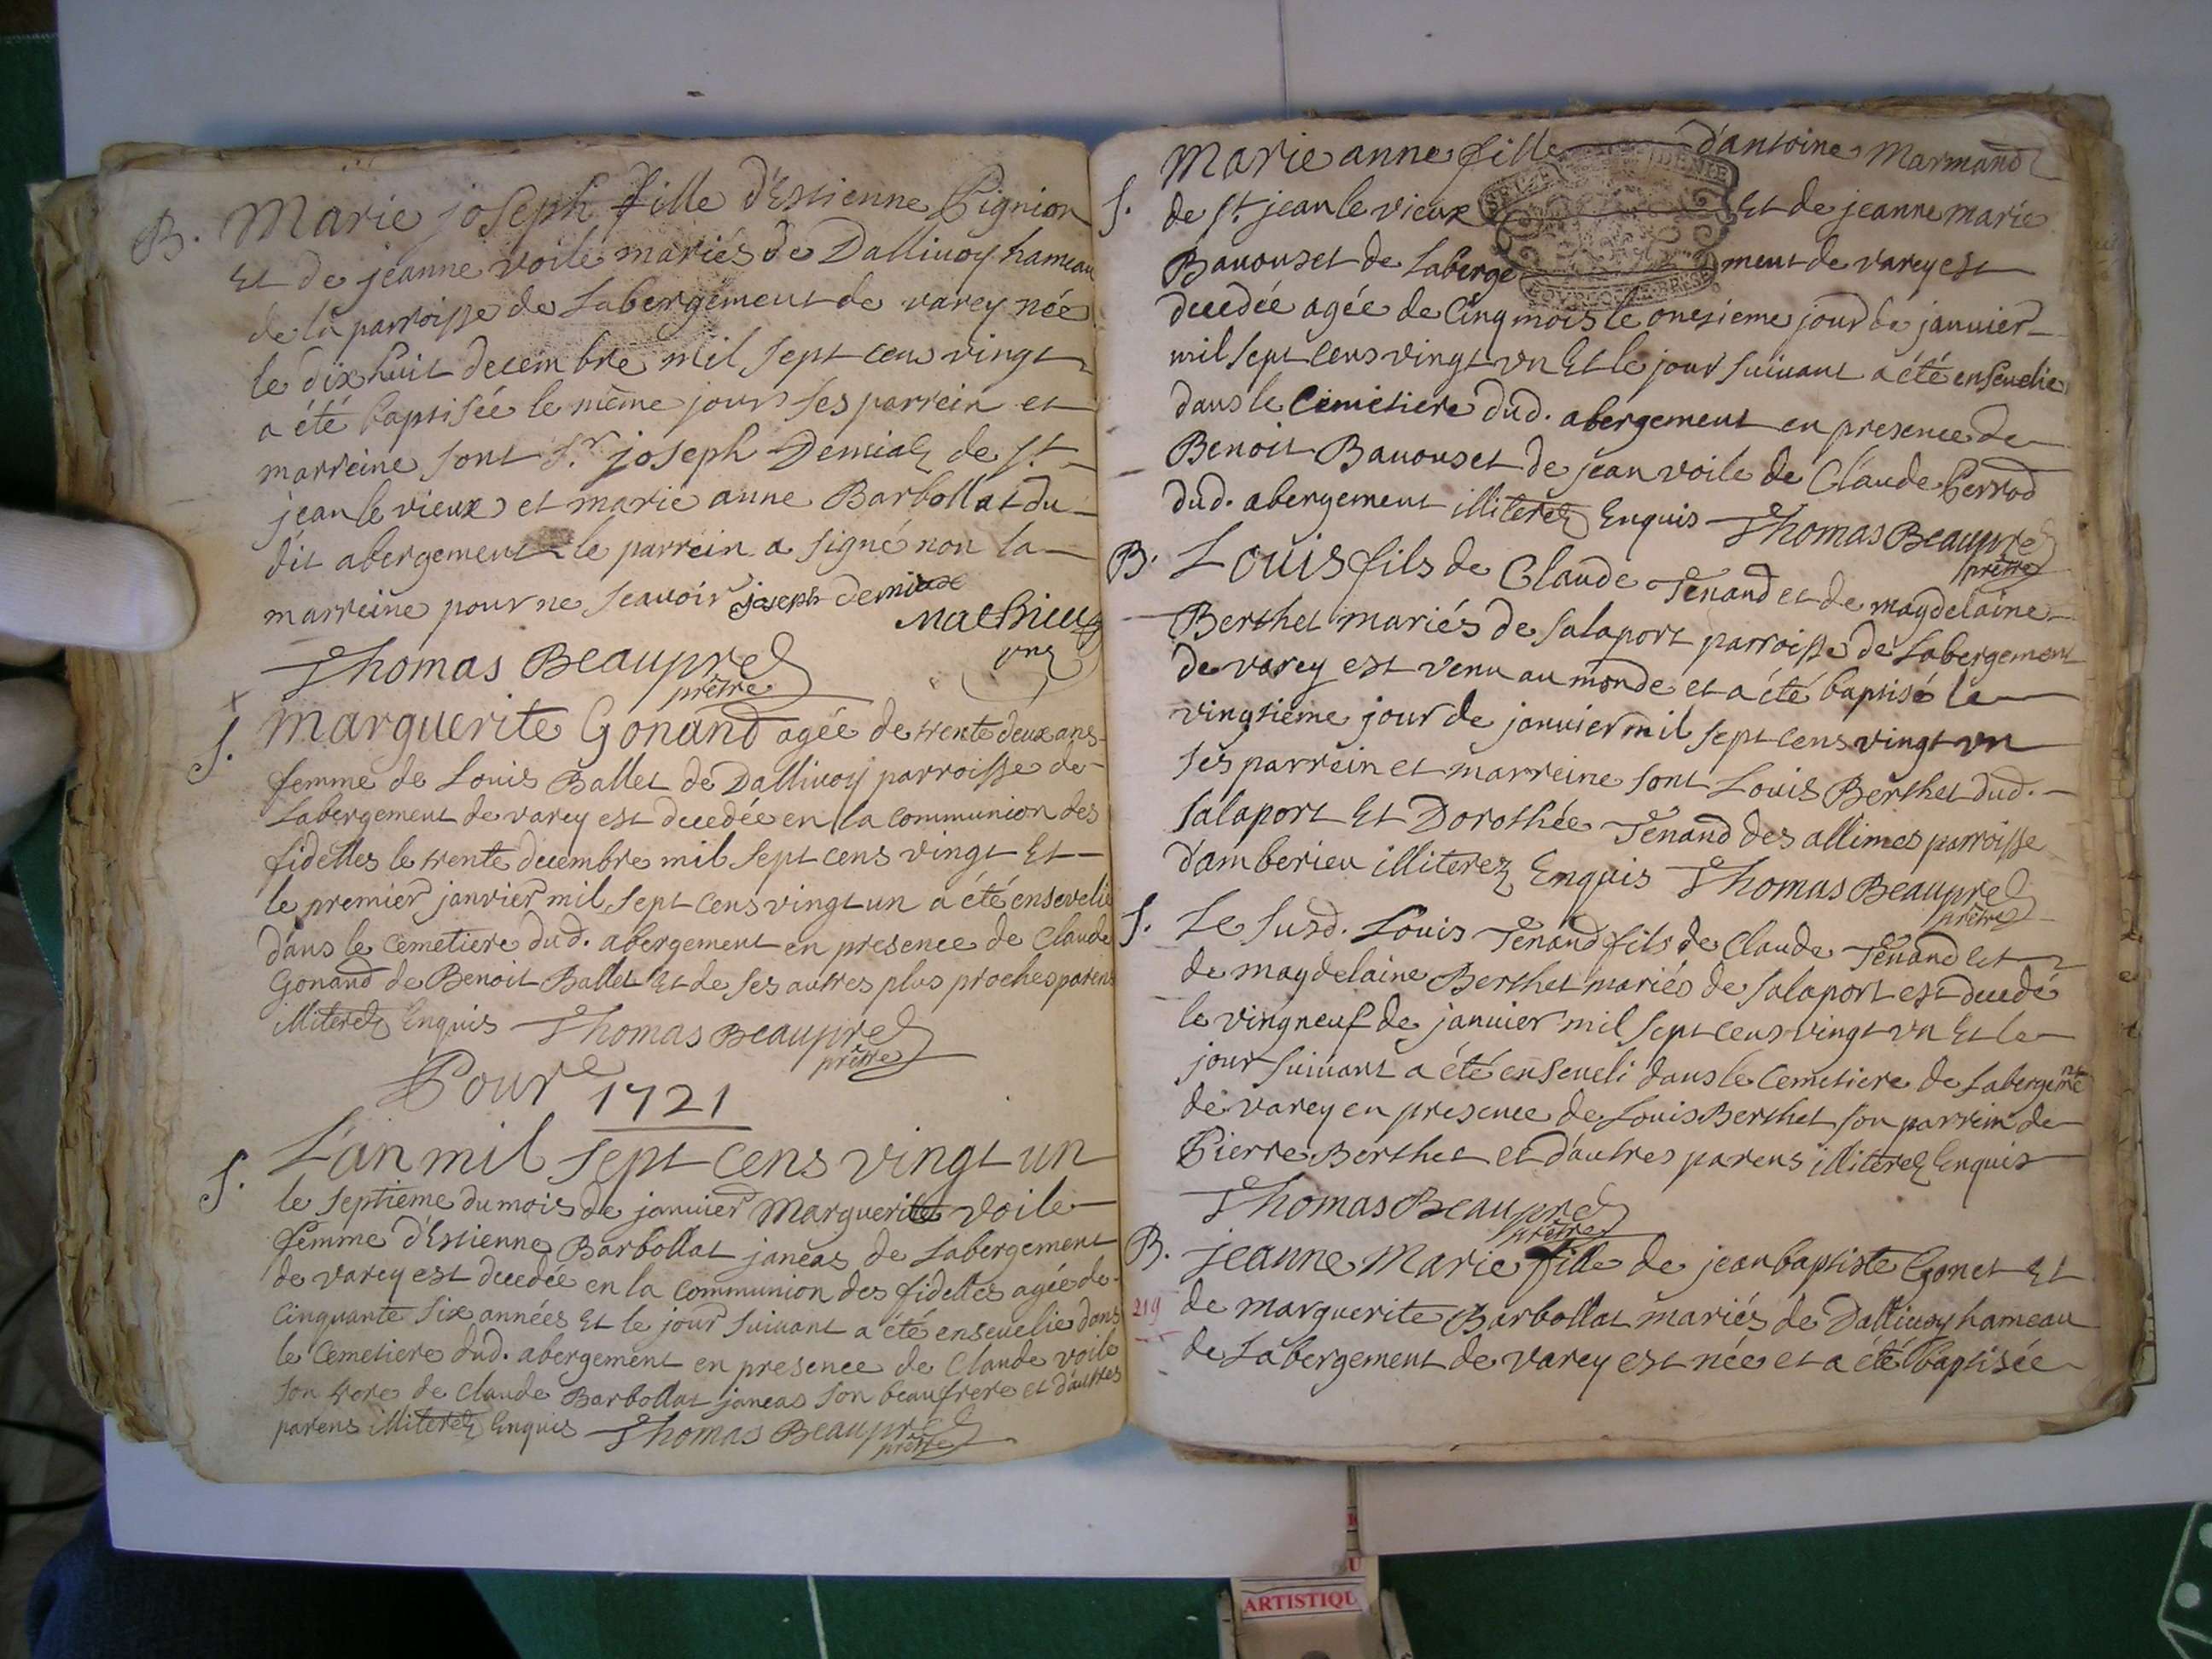 B. Marie joseph fille d'Estienne Pignion
et de jeanne voile mariés de Dallivoy hameau
de la parroisse de Labergement de varey née
le dix huit decembre mil sept cens vingt
a été baptisée le même jour ses parrein et
marreine sont Sr. joseph Demiaz de St.
jean le vieux et marie anne Barbollat du
dit abergement le parrein a signé non la
marreine pour ne scavoir joseph demiaz
Mathieu
Thomas Beaupre
prêtre
S. Marguerite Gonand agée de trente deux ans
femme de Louis Ballet de Dallivoy parroisse de
Labergement de varey est decedée en la communion des
fidelles le trente decembre mil sept cens vingt Et
le premier janvier mil sept cens vingt un a été ensevelie
dans le cemetiere dud. abergement en presence de Claude
Gonand de Benoit Ballet Et de ses autres plus proches parens
illiterez Enquis Thomas Beaupre
prêtre
Pour 1721
S. L'an mil sept cens vingt un
le septieme du mois de janvier Marguerite voile
femme d'Estienne Barbollat janeas de Labergement
de varey est decedée en la communion des fidelles agée de
cinquante six années Et le jour suivant a été ensevelie dans
le Cemetiere dud. abergement en presence de Claude voile
son frere de claude Barbollat janeas son beaufrere et d'autres
parens illiterez Enquis Thomas Beaupre
prêtre
S. Marie anne fille d'antoine Marmand
de St. jean le vieux Et de jeanne marie
Bavouset de Laberge ment de varey est
decedée agée de Cinq mois le onesieme jour de janvier
mil sept cens vingt vn Et le jour suivant a été ensevelie
dans le Cemetiere dud. abergement en presence de
Benoit Bavouset de jean voile de Claude Perrod
dud. abergement illiterez Enquis Thomas Beaupre
prêtre
B. Louis fils de Claude Tenand et de magdelaine
Berthet mariés de Salaport parroisse de Labergement
de varey est venu au monde et a été baptisé le
vingtieme jour de janvier mil sept cens vingt vn
ses parrein et marreine sont Louis Berthet dud.
Salaport Et Dorothée Tenand des allimes parroisse
d'amberieu illiterez Enquis Thomas Beaupre
prêtre
S. Le susd. Louis Tenand fils de Claude Tenand et
de magdelaine Berthet mariés de Salaport est decedé
le vingneuf de janvier mil sept cens vingt vn Et le
jour suivant a été enseveli dans le Cemetiere de Labergemt
de varey en presence de Louis Berthet son parrein de
Pierre Berthet et d'autres parens illiterez Enquis
Thomas Beaupre
prêtre
B. jeanne Marie fille de jean baptiste Gonet Et
219 de marguerite Barbollat mariés de Dallivoy hameau
de Labergement de varey est née et a été baptisée
ARTISTIQU